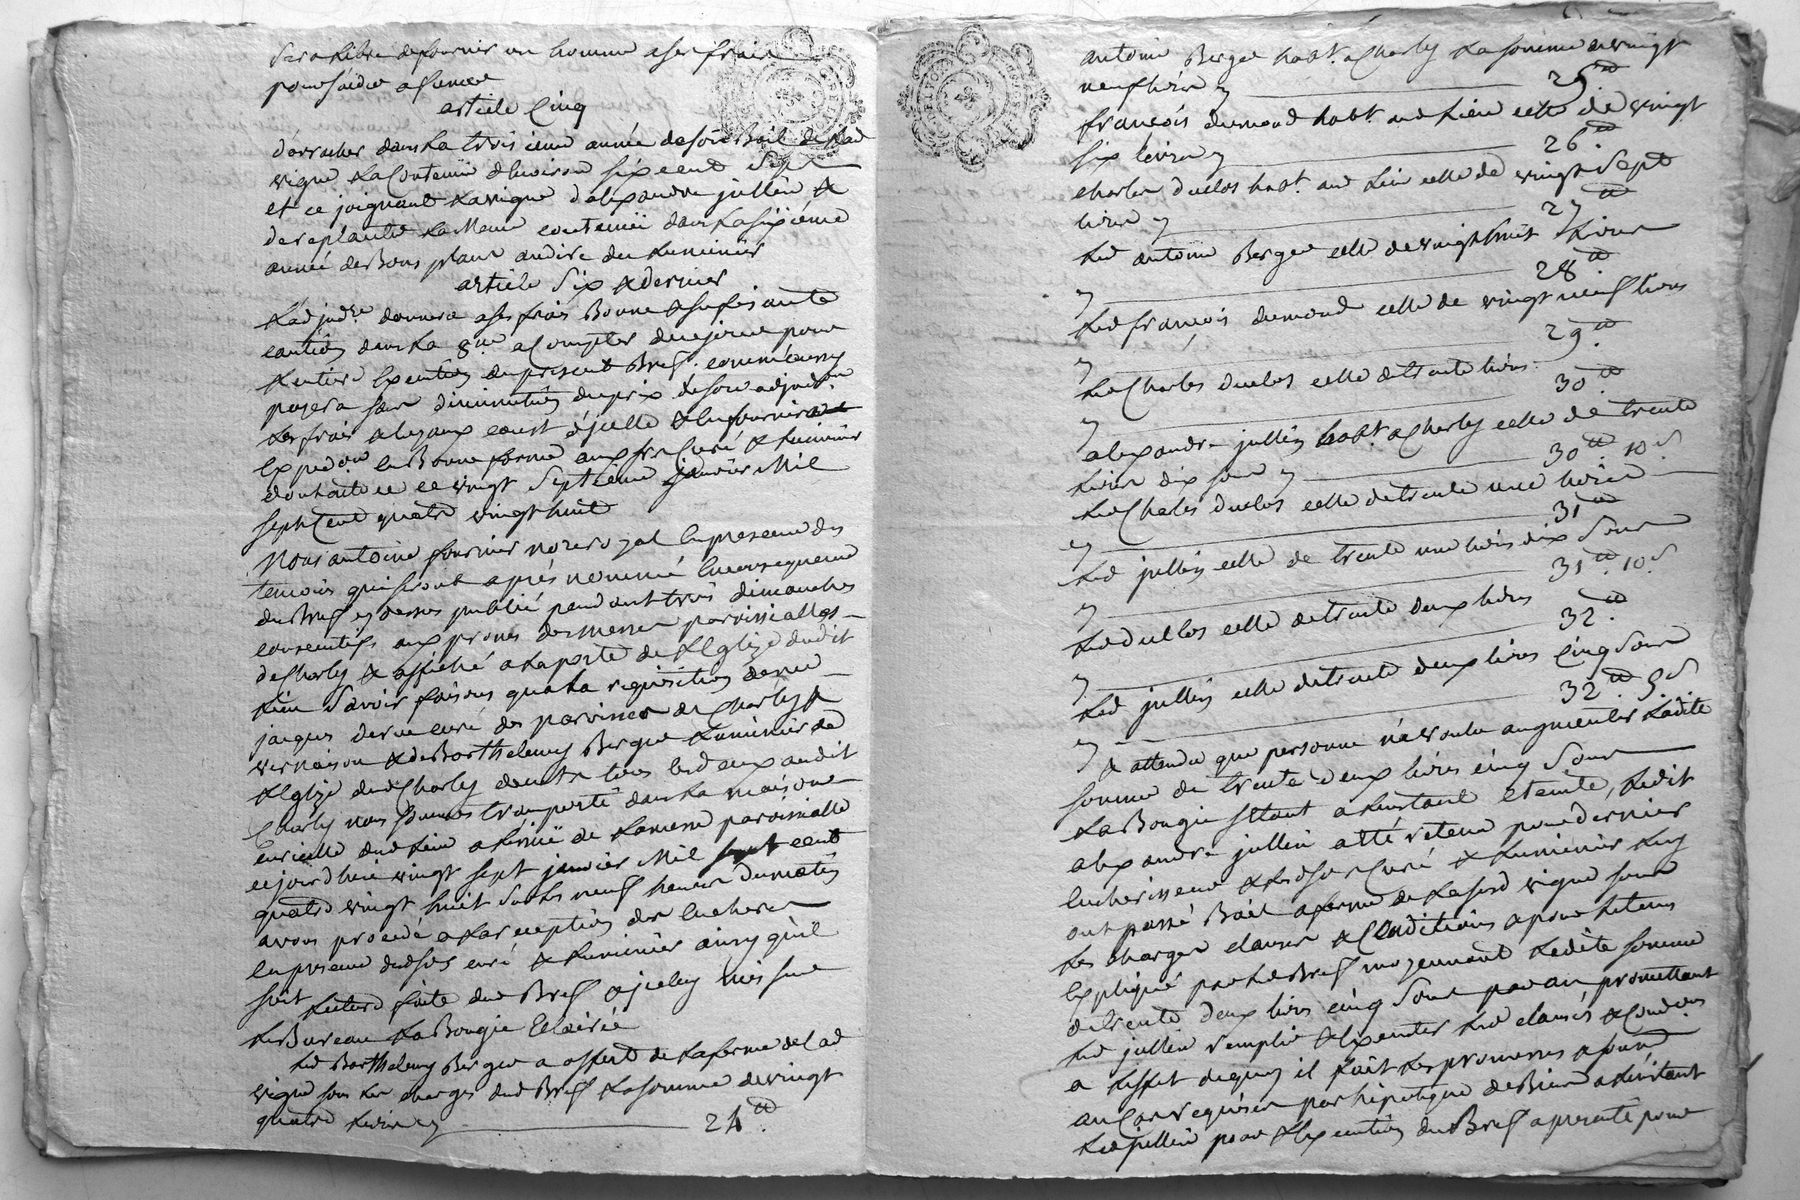 sera Libre de fournir un homme a ses frais
pour
article Cinq
d'arracher dans La troisieme année de son Bail de Lad
vigne La Contenüe d'Environ six cent
et ce joignant La vigne d'alexandre jullien &
de replanter La Meme contenüe dans La sixiéme
année de Bons plans au dire du Luminier
article Six & dernier
L'adjud.re donnera a ses frais Bonne & sufisante
caution dans La 8.ne a Compter de ce jour pour
L'entiere Execution du present Bref. comme aussy
payera sans diminution du prix de son adjud.on
Les frais & Loyaux coust d'jcelle & En fournira
Expedon En Bonne forme aux srs Curé & Luminier
ce vingt Septieme janvier Mil
sept Cent quatre vingt huit
Nous antoine fournier no.re royal En presence des
temoins qui seront après nommé En consequence
du Bref cy dessus publié pendant trois dimanches
consecutifs aux prones des Messes paroissialles
de Charly & affiché a La porte de L'Eglize dudit
Lieu Savoir faisons qua La requisition de me
jacques derue curé des paroisses de Charly &
vernaison & de Barthelemy Berger Luminier de
L'Eglize dud Charly demts tous Les deux audit
Charly nous sommes transporté dans La maison
curialle dud Lieu a L'issüe de La messe paroissialle
ce jourd'hui vingt sept janvier Mil sept cent
quatre vingt huit Sur Les neuf heures du matin
avons procedé a La reception des Encheres
En presence desd srs curé & Luminier ainsy qu'il
suit
Lecture faite dud Bref & jceluy mis sur
Le Bureau La Bougie Eclairée
Led Barthelemy Berger a offert de La ferme de Lad
vigne sous Les charges dud Bref La somme de vingt
quatre Livres 24.tt
antoine Berger habt. a Charly La somme de vingt
cinq livres 25.tt
françois dumond habt. aud Lieu celle de vingt
six livres 26.tt
charles duclos habt. aud Lieu celle de vingt Sept
livres 27.tt
Led antoine Berger celle de vingt huit Livres
28.tt
Led françois dumond celle de vingt neuf livres
29.tt
Led Charles duclos celle de trente livres
30.tt
alexandre jullien habt. a Charly celle de trente
Livres dix sous 30.tt 10.s
Led Charles duclos celle de trente une livres
31.tt
Led jullien celle de trente une livres dix Sous
31.tt 10.s
Led duclos celle de trente deux livres
32.tt
Led jullien celle de trente deux livres Cinq Sous
32.tt 5.s
& attendu que personne n'a voulu augmenter Ladite
somme de trente deux livres cinq Sous
La Bougie s'Etant a L'instant eteinte, Ledit
alexandre jullien a Eté retenu pour dernier
Encherisseur & Lesd srs Curé & Luminier Luy
ont passé Bail a ferme de La susd vigne sous
Les charges clauses & Conditions apres Le tems
Expliqué par Le Bref moyennant Ladite somme
de trente deux livres cinq Sous par an promettant
Led jullien remplir & Executer Led clauses & Condi.ons
a L'effet dequoy il fait Les promesses
au Cas requises par hipoteque de Biens a L'instant
Led jullien pour L'Execution du Bref a presenté pour